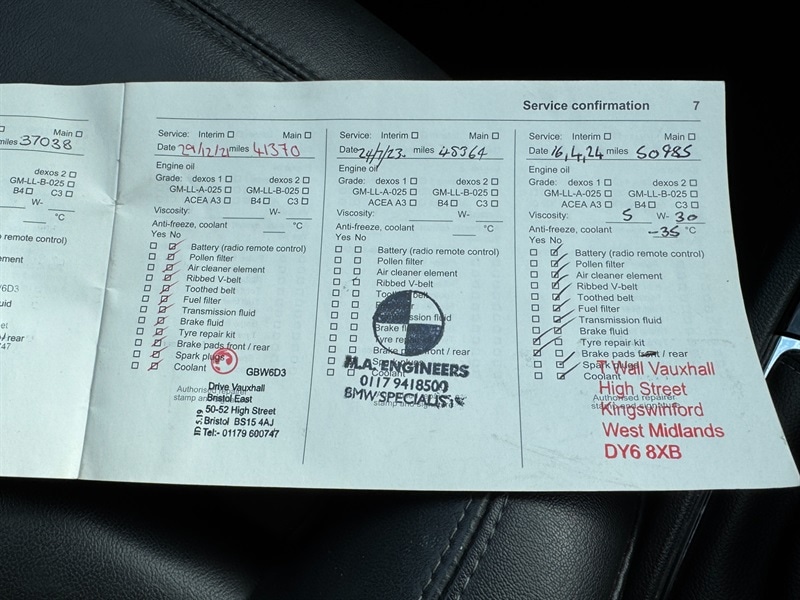 Service confirmation 7
Main
miles 37038
dexos 2
GM-LL-B-025
B4 C3
W-
°C
remote control)
ement
Y6D3
uid
/rear
747
Service: Interim Main
Date 29/12/21 miles 41370
Engine oil
Grade: dexos 1 dexos 2
GM-LL-A-025 GM-LL-B-025
ACEA A3 B4 C3
Viscosity: W-
Anti-freeze, coolant °C
Yes No
Battery (radio remote control)
Pollen filter
Air cleaner element
Ribbed V-belt
Toothed belt
Fuel filter
Transmission fluid
Brake fluid
Tyre repair kit
Brake pads front / rear
Spark plugs
Coolant GBW6D3
Authorised repairer
stamp and
Drive Vauxhall
Bristol East
50-52 High Street
Bristol BS15 4AJ
Tel:- 01179 600747
ID 5.19
Service: Interim Main
Date 24/7/23. miles 48364
Engine oil
Grade: dexos 1 dexos 2
GM-LL-A-025 GM-LL-B-025
ACEA A3 B4 C3
Viscosity: W-
Anti-freeze, coolant °C
Yes No
Battery (radio remote control)
Pollen filter
Air cleaner element
Ribbed V-belt
Toothed belt
fluid
Brake fluid
Tyre repair kit
Brake pads front / rear
Coolant
M.A. ENGINEERS
0117 9418500
BMW SPECIALIST
stamp and
Service: Interim Main
Date 16,4,24 miles 50985
Engine oil
Grade: dexos 1 dexos 2
GM-LL-A-025 GM-LL-B-025
ACEA A3 B4 C3
Viscosity: 5 W- 30
Anti-freeze, coolant -35 °C
Yes No
Battery (radio remote control)
Pollen filter
Air cleaner element
Ribbed V-belt
Toothed belt
Fuel filter
Transmission fluid
Brake fluid
Tyre repair kit
Brake pads front / rear
Spark plugs
Coolant
Authorised repairer
stamp and signature
T Wall Vauxhall
High Street
Kingswinford
West Midlands
DY6 8XB